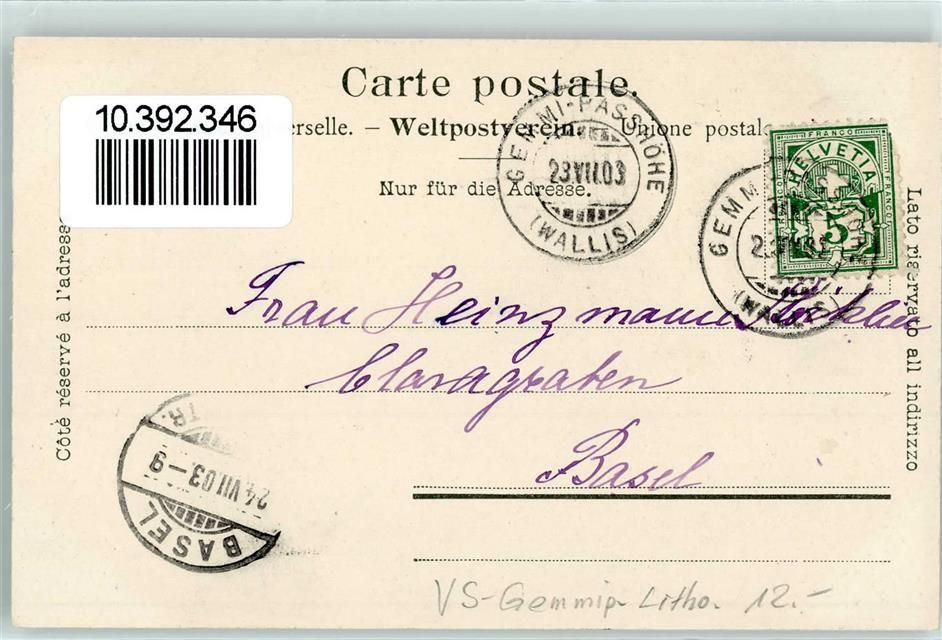 Carte postale.
10.392.346
erselle. – Weltpostverein. Unione postale
Nur für die Adresse.
GEMMI-PASSHÖHE
23.VII.03
(WALLIS)
FRANCO
HELVETIA
FRANCO
5
GEMMI
(WALLIS)
Côté réservé à l'adresse
Lato riservato all indirizzo
Frau Heinzmann
Claragraben
Basel
TR.
24.VII.03.–9
BASEL
VS-Gemmip- Litho. 12.–